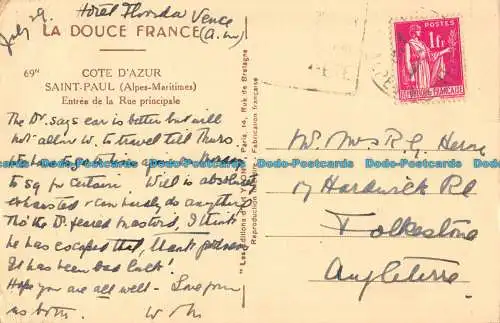 Hotel Florida Vence
July 29.
(A.M)
LA DOUCE FRANCE
69" COTE D'AZUR
SAINT-PAUL (Alpes-Maritimes)
Entrée de la Rue principale
The Dr. says ear is better but will
not allow W. to travel till Thurs
to
to sq for certain. Will is absolutely
exhausted & can hardly do anything
Tho' the Dr. feared mastoid, I think
he has escaped that, thank
It has been bad luck!
Hope you are all well - Love from
us both. W
"Les Editions d'Art YVON", Paris, 14, Rue de Bretagne
Reproduction interdite - Fabrication française
POSTES
1Fr
REPUBLIQUE FRANÇAISE
Mr Mrs R.G. Herne
17 Hardwick Rd
Folkestone
Angleterre
Dodo-Postcards Dodo-Postcards Dodo-Postcards Dodo-Postcards Dodo-Postcards